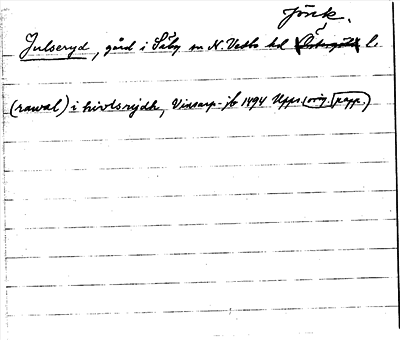 Jönk.
Julseryd, gård i Säby sn N. Vedbo hd l.
(rawal) i hivlsrydh, Vinsarp-jb 1494 Upps. (orig. papp.)